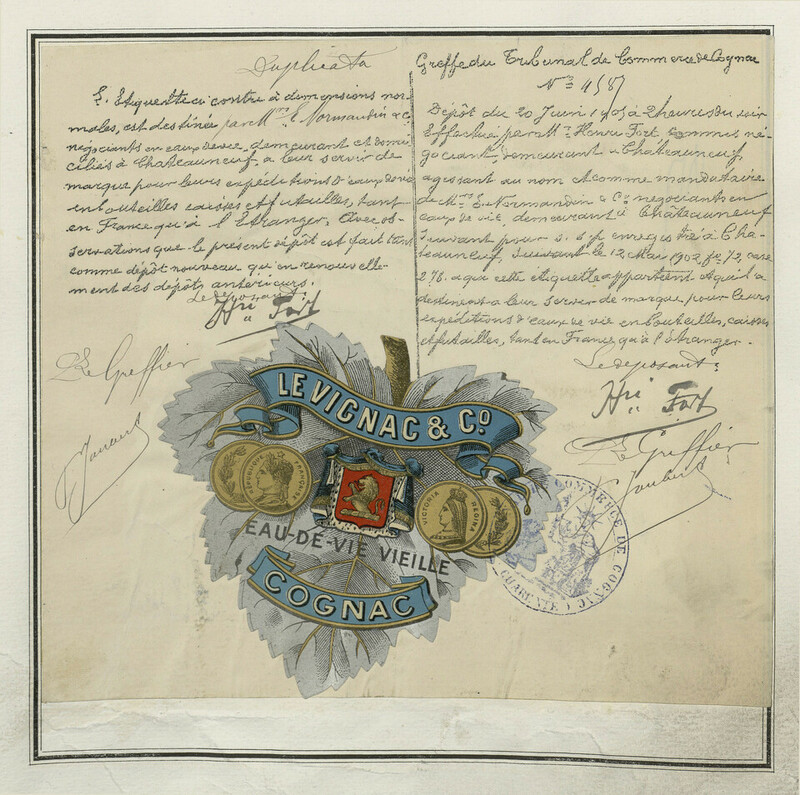 Duplicata
L'Etiquette ci contre à dimensions nor-
males, est destinée par Mrs E. Normandin & Co
négociants en eaux de vie, demeurant et domi-
ciliés à Chateauneuf, à leur servir de
marque pour leurs expéditions d'eaux de vie
en bouteilles caisses et futailles, tant
en France qu'à l'Etranger. Avec ob-
servations que le présent dépôt est fait tant
comme dépôt nouveau qu'en renouvelle-
ment des dépôts antérieurs.
Le déposant:
Hri Fort
Le Greffier
Greffe du Tribunal de Commerce de Cognac
Dépôt du 20 Juin 1905 à 2 heures du soir
Effectué par Mr Henri Fort commis né-
gociant, demeurant à Châteauneuf,
agissant au nom et comme mandataire
de Mrs E. Normandin & Co négociants en
eaux de vie, demeurant à Châteauneuf
suivant pour s. s. p enregistré à Châ-
teauneuf, suivant le 12 Mai 1902, fo 72, case
276. a que cette étiquette appartient et qu'il a
destinent à leur server de marque, pour leurs
expéditions d'eaux de vie en bouteilles, caisses
et futailles, tant en France qu'à l'étranger.
Le déposant:
Hri Fort
Le Greffier
LEVIGNAC & Co
REPUBLIQUE FRANÇAISE
VICTORIA REGINA
EAU-DE-VIE VIEILLE
COGNAC
COMMERCE DE COGNAC
CHARENTE